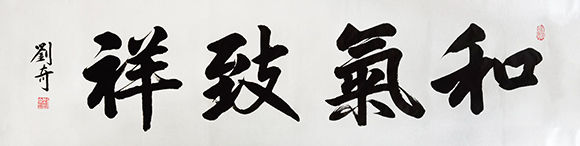 和氣致祥
劉奇